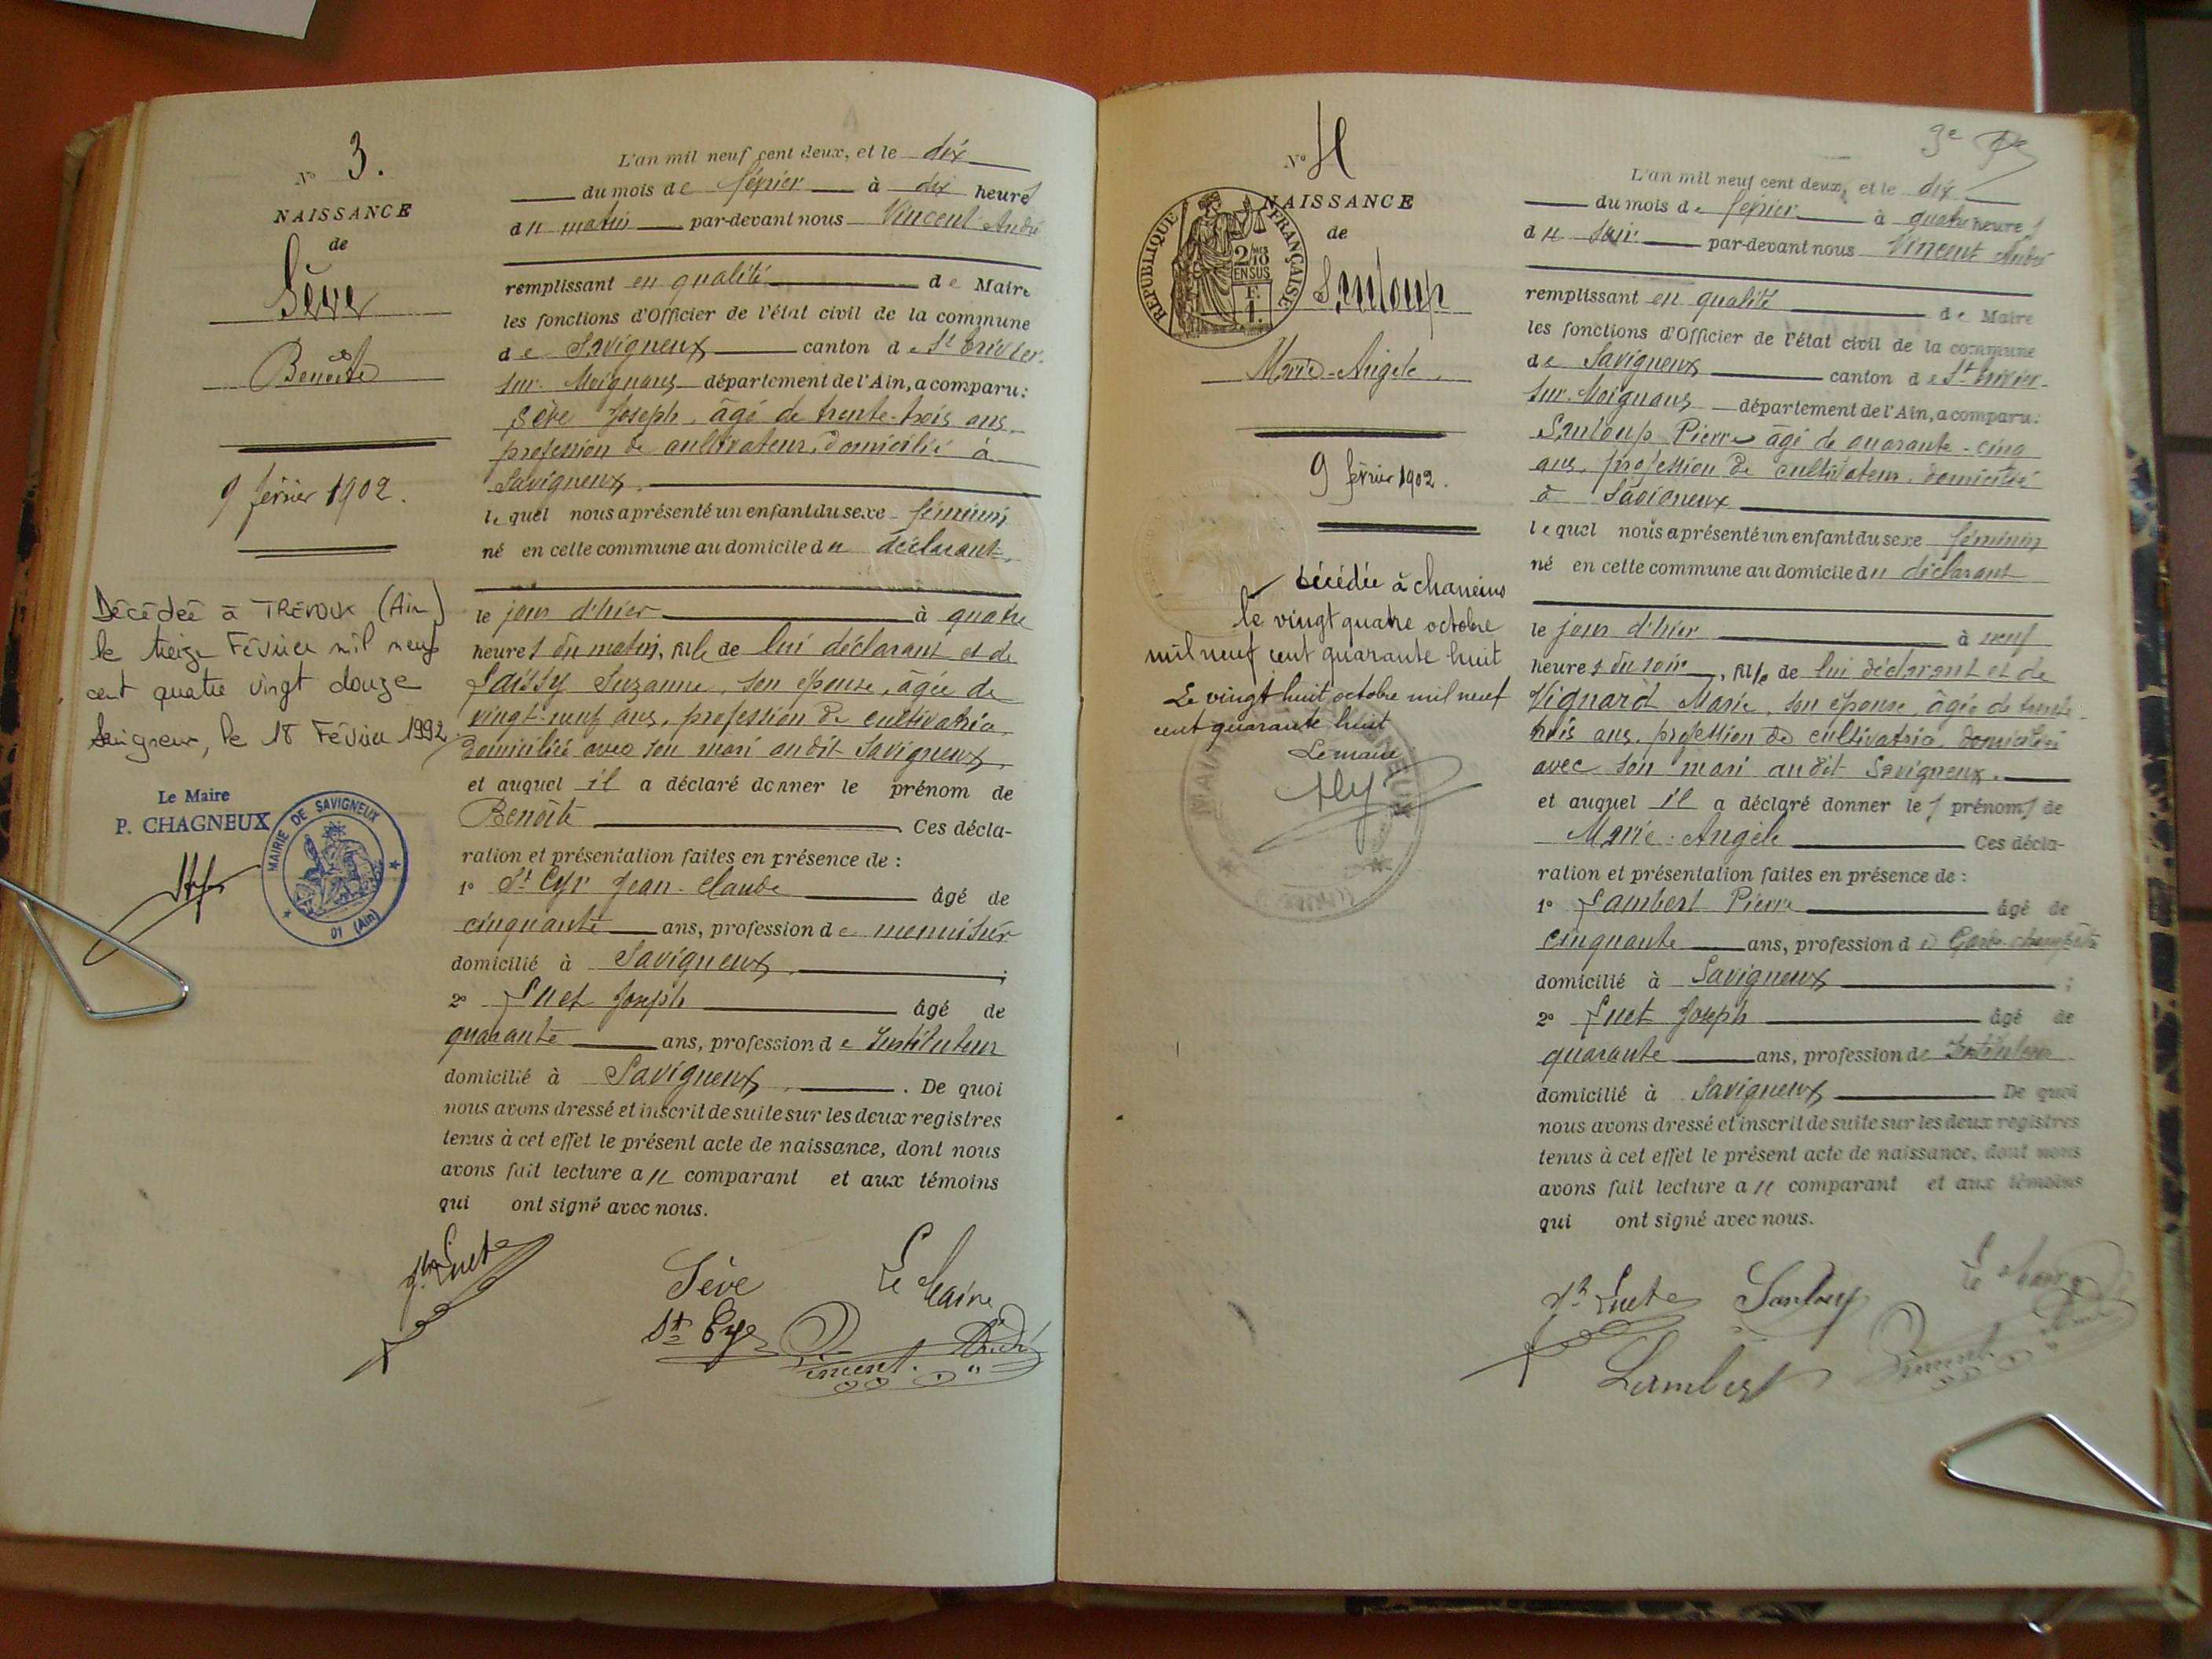 N° 3.
NAISSANCE
de
Sève
Benoîte
9 février 1902.
Décédée à TREVOUX (Ain)
le treize Février mil neuf
cent quatre vingt douze
le 18 Février 1992.
Le Maire
P. CHAGNEUX
MAIRIE DE SAVIGNEUX
01 (Ain)
L'an mil neuf cent deux, et le dix
du mois de février à dix heures
du matin par-devant nous Vincent André
remplissant en qualité de Maire
les fonctions d'Officier de l'état civil de la commune
de Savigneux canton de St Trivier
sur Moignans département de l'Ain, a comparu:
Sève Joseph, âgé de trente-trois ans
profession de cultivateur, domicilié à
Savigneux.
lequel nous a présenté un enfant du sexe féminin
né en cette commune au domicile du déclarant,
le jour d'hier à quatre
heures du matin, fille de lui déclarant et de
Suzanne, son épouse, âgée de
vingt-neuf ans, profession de cultivatrice,
domiciliée avec son mari audit Savigneux,
et auquel il a déclaré donner le prénom de
Benoîte Ces décla-
ration et présentation faites en présence de :
1° St Cyr Jean-Claude âgé de
cinquante ans, profession de menuisier
domicilié à Savigneux ;
2° Luet Joseph âgé de
quarante ans, profession de Instituteur
domicilié à Savigneux . De quoi
nous avons dressé et inscrit de suite sur les deux registres
tenus à cet effet le présent acte de naissance, dont nous
avons fait lecture au comparant et aux témoins
qui ont signé avec nous.
Jh Luet
Sève
Le Maire
St Cyr
Vincent André
N° 4
NAISSANCE
de
RÉPUBLIQUE FRANÇAISE
2/10 EN SUS
F.
1.
Sauloup
Marie-Angèle
9 février 1902.
Décédée à Chaneins
le vingt quatre octobre
mil neuf cent quarante huit
Le vingt huit octobre mil neuf
cent quarante huit
Le maire
L'an mil neuf cent deux, et le dix
du mois de février à quatre heures
du soir par-devant nous Vincent André
remplissant en qualité de Maire
les fonctions d'Officier de l'état civil de la commune
de Savigneux canton de St Trivier-
sur-Moignans département de l'Ain, a comparu:
Sauloup Pierre âgé de quarante-cinq
ans, profession de cultivateur, domicilié
à Savigneux
lequel nous a présenté un enfant du sexe féminin
né en cette commune au domicile du déclarant
le jour d'hier à neuf
heures du soir, fille de lui déclarant et de
Vignard Marie, son épouse, âgée de trente-
trois ans, profession de cultivatrice, domiciliée
avec son mari audit Savigneux.
et auquel il a déclaré donner les prénoms de
Marie-Angèle Ces décla-
ration et présentation faites en présence de :
1° Lambert Pierre âgé de
cinquante ans, profession de Garde-champêtre
domicilié à Savigneux ;
2° Luet Joseph âgé de
quarante ans, profession de Instituteur
domicilié à Savigneux De quoi
nous avons dressé et inscrit de suite sur les deux registres
tenus à cet effet le présent acte de naissance, dont nous
avons fait lecture au comparant et aux témoins
qui ont signé avec nous.
Jh Luet
Sauloup
Le Maire
Lambert
Vincent André